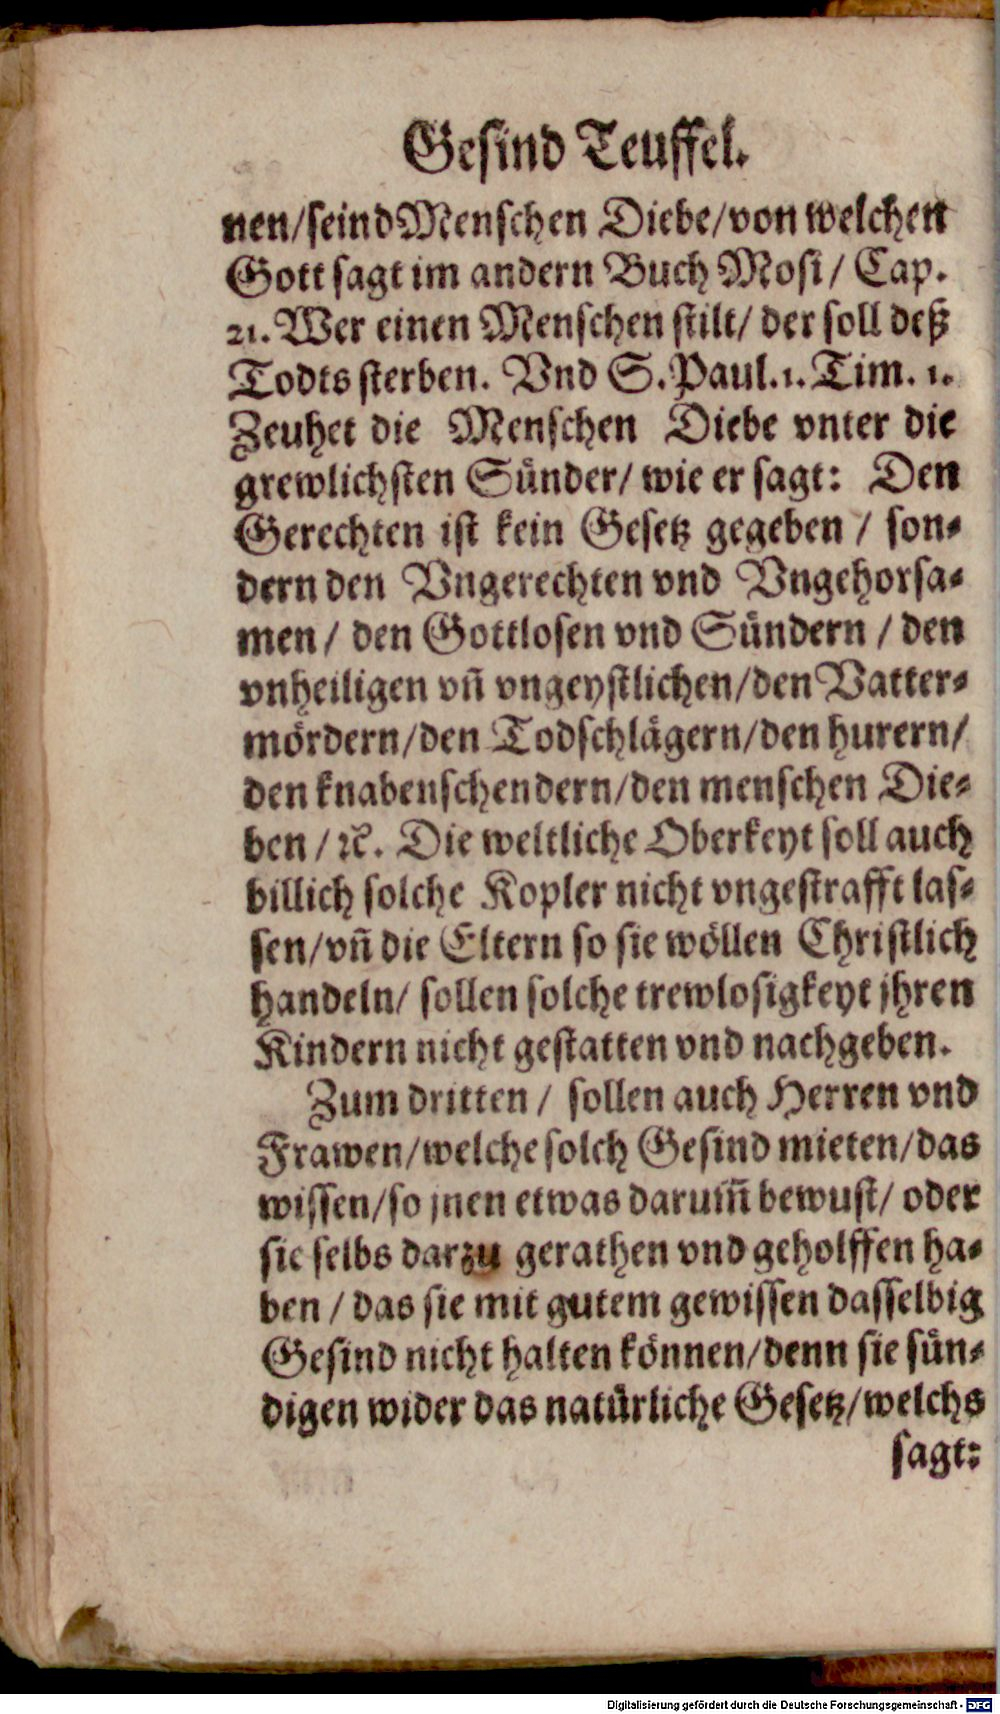 Gesind Teuffel.
nen/seind Menschen Diebe/von welchen
Gott sagt im andern Buch Mosi/ Cap.
21. Wer einen Menschen stilt/ der soll deß
Todts sterben. Vnd S. Paul. 1. Tim. 1.
Zeuhet die Menschen Diebe vnter die
grewlichsten Sünder/ wie er sagt: Den
Gerechten ist kein Gesetz gegeben / son-
dern den Vngerechten vnd Vngehorsa-
men/ den Gottlosen vnd Sündern / den
vnheiligen vñ vngeystlichen/den Vatter-
mördern/den Todschlägern/den hurern/
den knabenschendern/den menschen Die-
ben /ꝛc. Die weltliche Oberkeyt soll auch
billich solche Kopler nicht vngestrafft las-
sen/vñ die Eltern so sie wöllen Christlich
handeln/ sollen solche trewlosigkeyt jhren
Kindern nicht gestatten vnd nachgeben.
Zum dritten / sollen auch Herren vnd
Frawen/welche solch Gesind mieten/das
wissen/so jnen etwas darum̃ bewust/ oder
sie selbs darzu gerathen vnd geholffen ha-
ben / das sie mit gutem gewissen dasselbig
Gesind nicht halten können/denn sie sün-
digen wider das natürliche Gesetz/welchs
sagt:
Digitalisierung gefördert durch die Deutsche Forschungsgemeinschaft - DFG